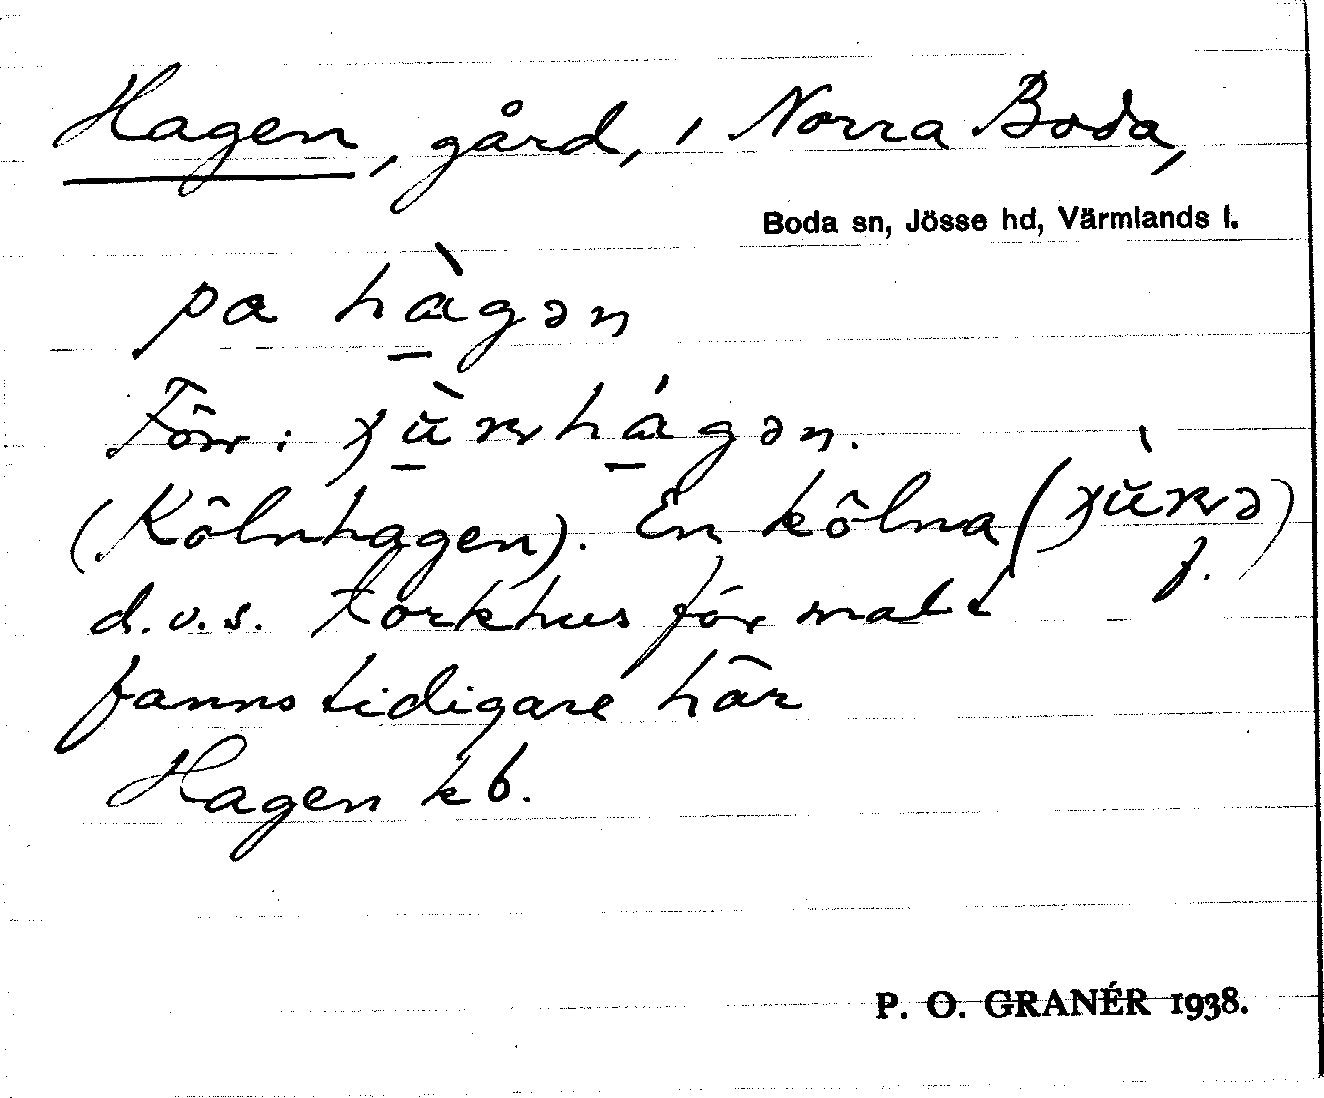 Hagen, gård, i Norra Boda,
Boda sn, Jösse hd, Värmlands l.
pa hàgən
Förr:
(Kölnhagen). En kölna f.
d.v.s. torkhus för malt
fanns tidigare här
Hagen kb.
P. O. GRANÉR 1938.